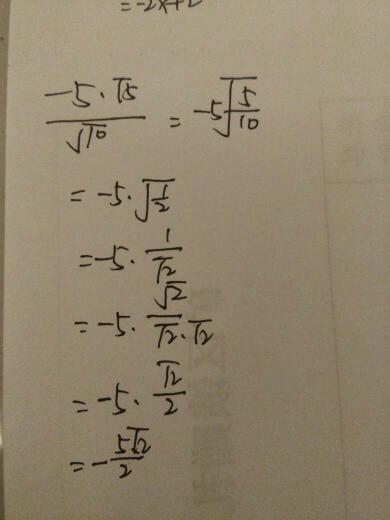 =-2x+2
-5·√5/√10 = -5√5/10
= -5·√1/2
= -5·1/√2
= -5·√2/√2·√2
= -5·√2/2
= -5√2/2